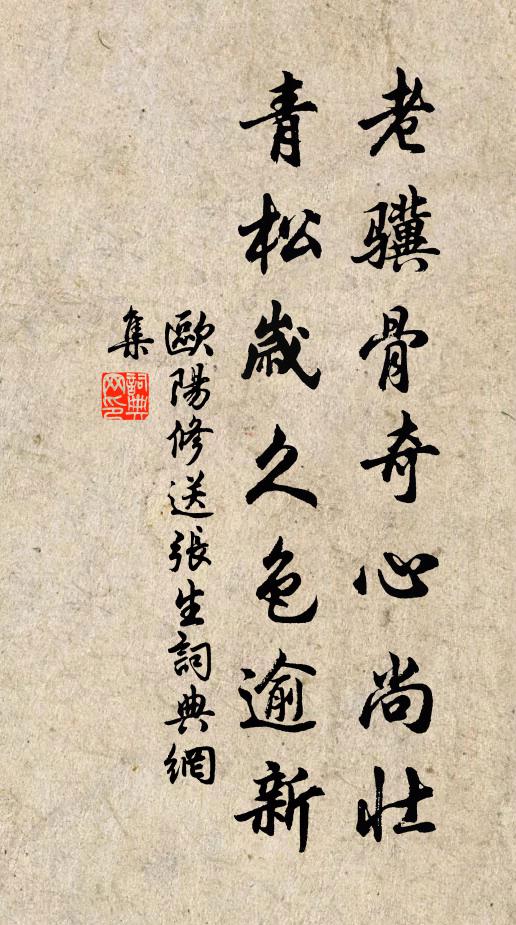 老驥骨奇心尚壯
青松歲久色逾新
歐陽修送張生詞典網
集
詞典網印